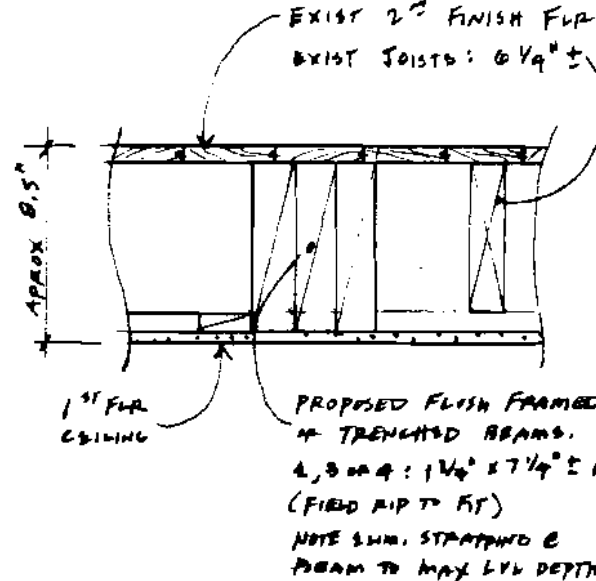 EXIST 2ND FINISH FLR
EXIST JOISTS: 6 1/4" ±
APPROX 8.5"
1ST FLR
CEILING
PROPOSED FLUSH FRAMED
OR TRENCHED BEAMS.
2, 3 OR 4: 1 3/4" x 7 1/4" ±
(FIELD RIP TO FIT)
NOTE ELIM. STRAPPING @
BEAM TO MAX LVL DEPTH